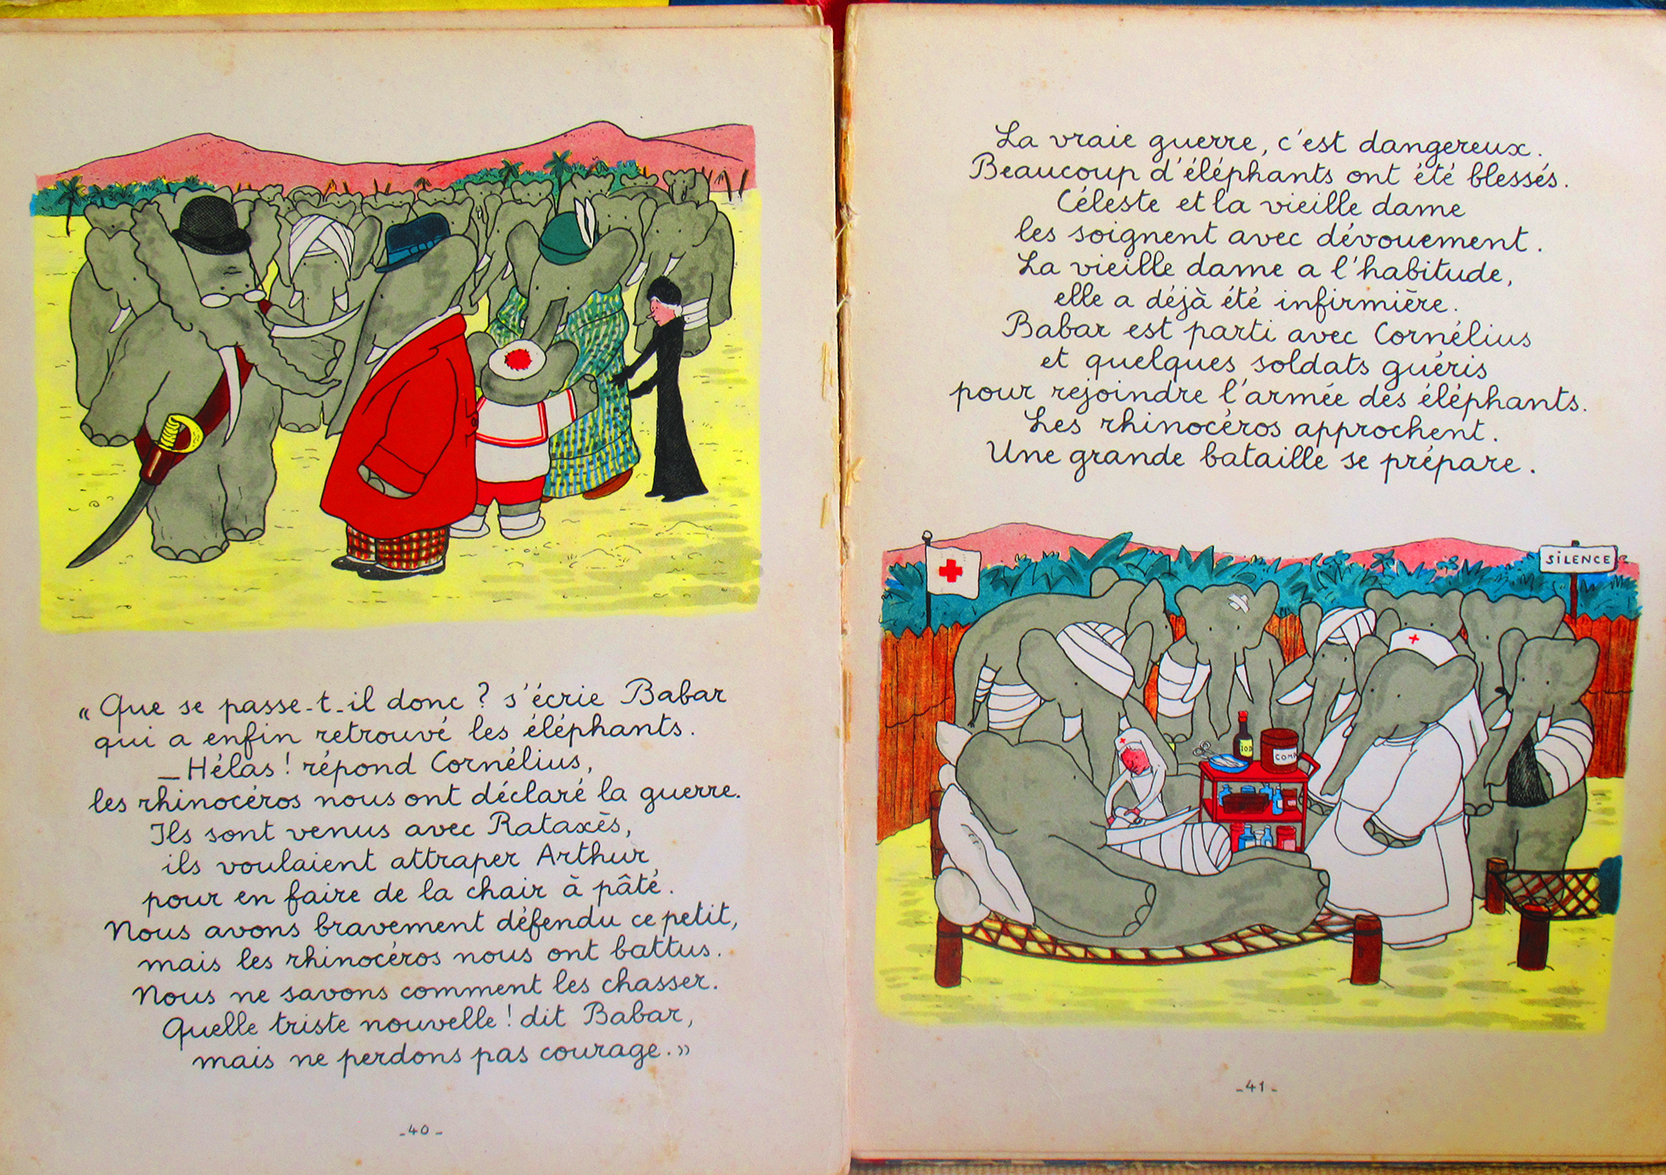 « Que se passe-t-il donc ? s'écrie Babar
qui a enfin retrouvé les éléphants.
_ Hélas ! répond Cornélius,
les rhinocéros nous ont déclaré la guerre.
Ils sont venus avec Rataxès,
ils voulaient attraper Arthur
pour en faire de la chair à pâté.
Nous avons bravement défendu ce petit,
mais les rhinocéros nous ont battus.
Nous ne savons comment les chasser.
Quelle triste nouvelle ! dit Babar,
mais ne perdons pas courage. »
_40_
La vraie guerre, c'est dangereux.
Beaucoup d'éléphants ont été blessés.
Céleste et la vieille dame
les soignent avec dévouement.
La vieille dame a l'habitude,
elle a déjà été infirmière.
Babar est parti avec Cornélius
et quelques soldats guéris
pour rejoindre l'armée des éléphants.
Les rhinocéros approchent.
Une grande bataille se prépare.
SILENCE
IOD
COMP
_41_